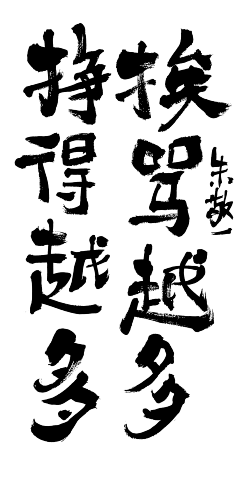 挨骂越多
挣得越多
朱敬一